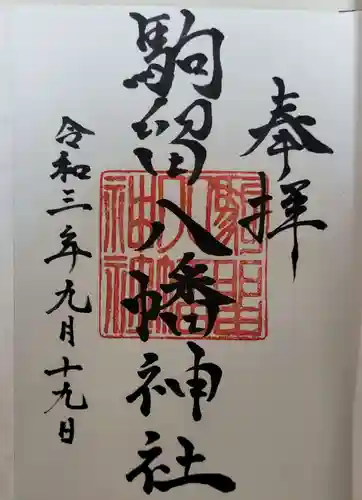 奉拝
駒留八幡神社
令和三年九月十九日
駒留
八幡
神社